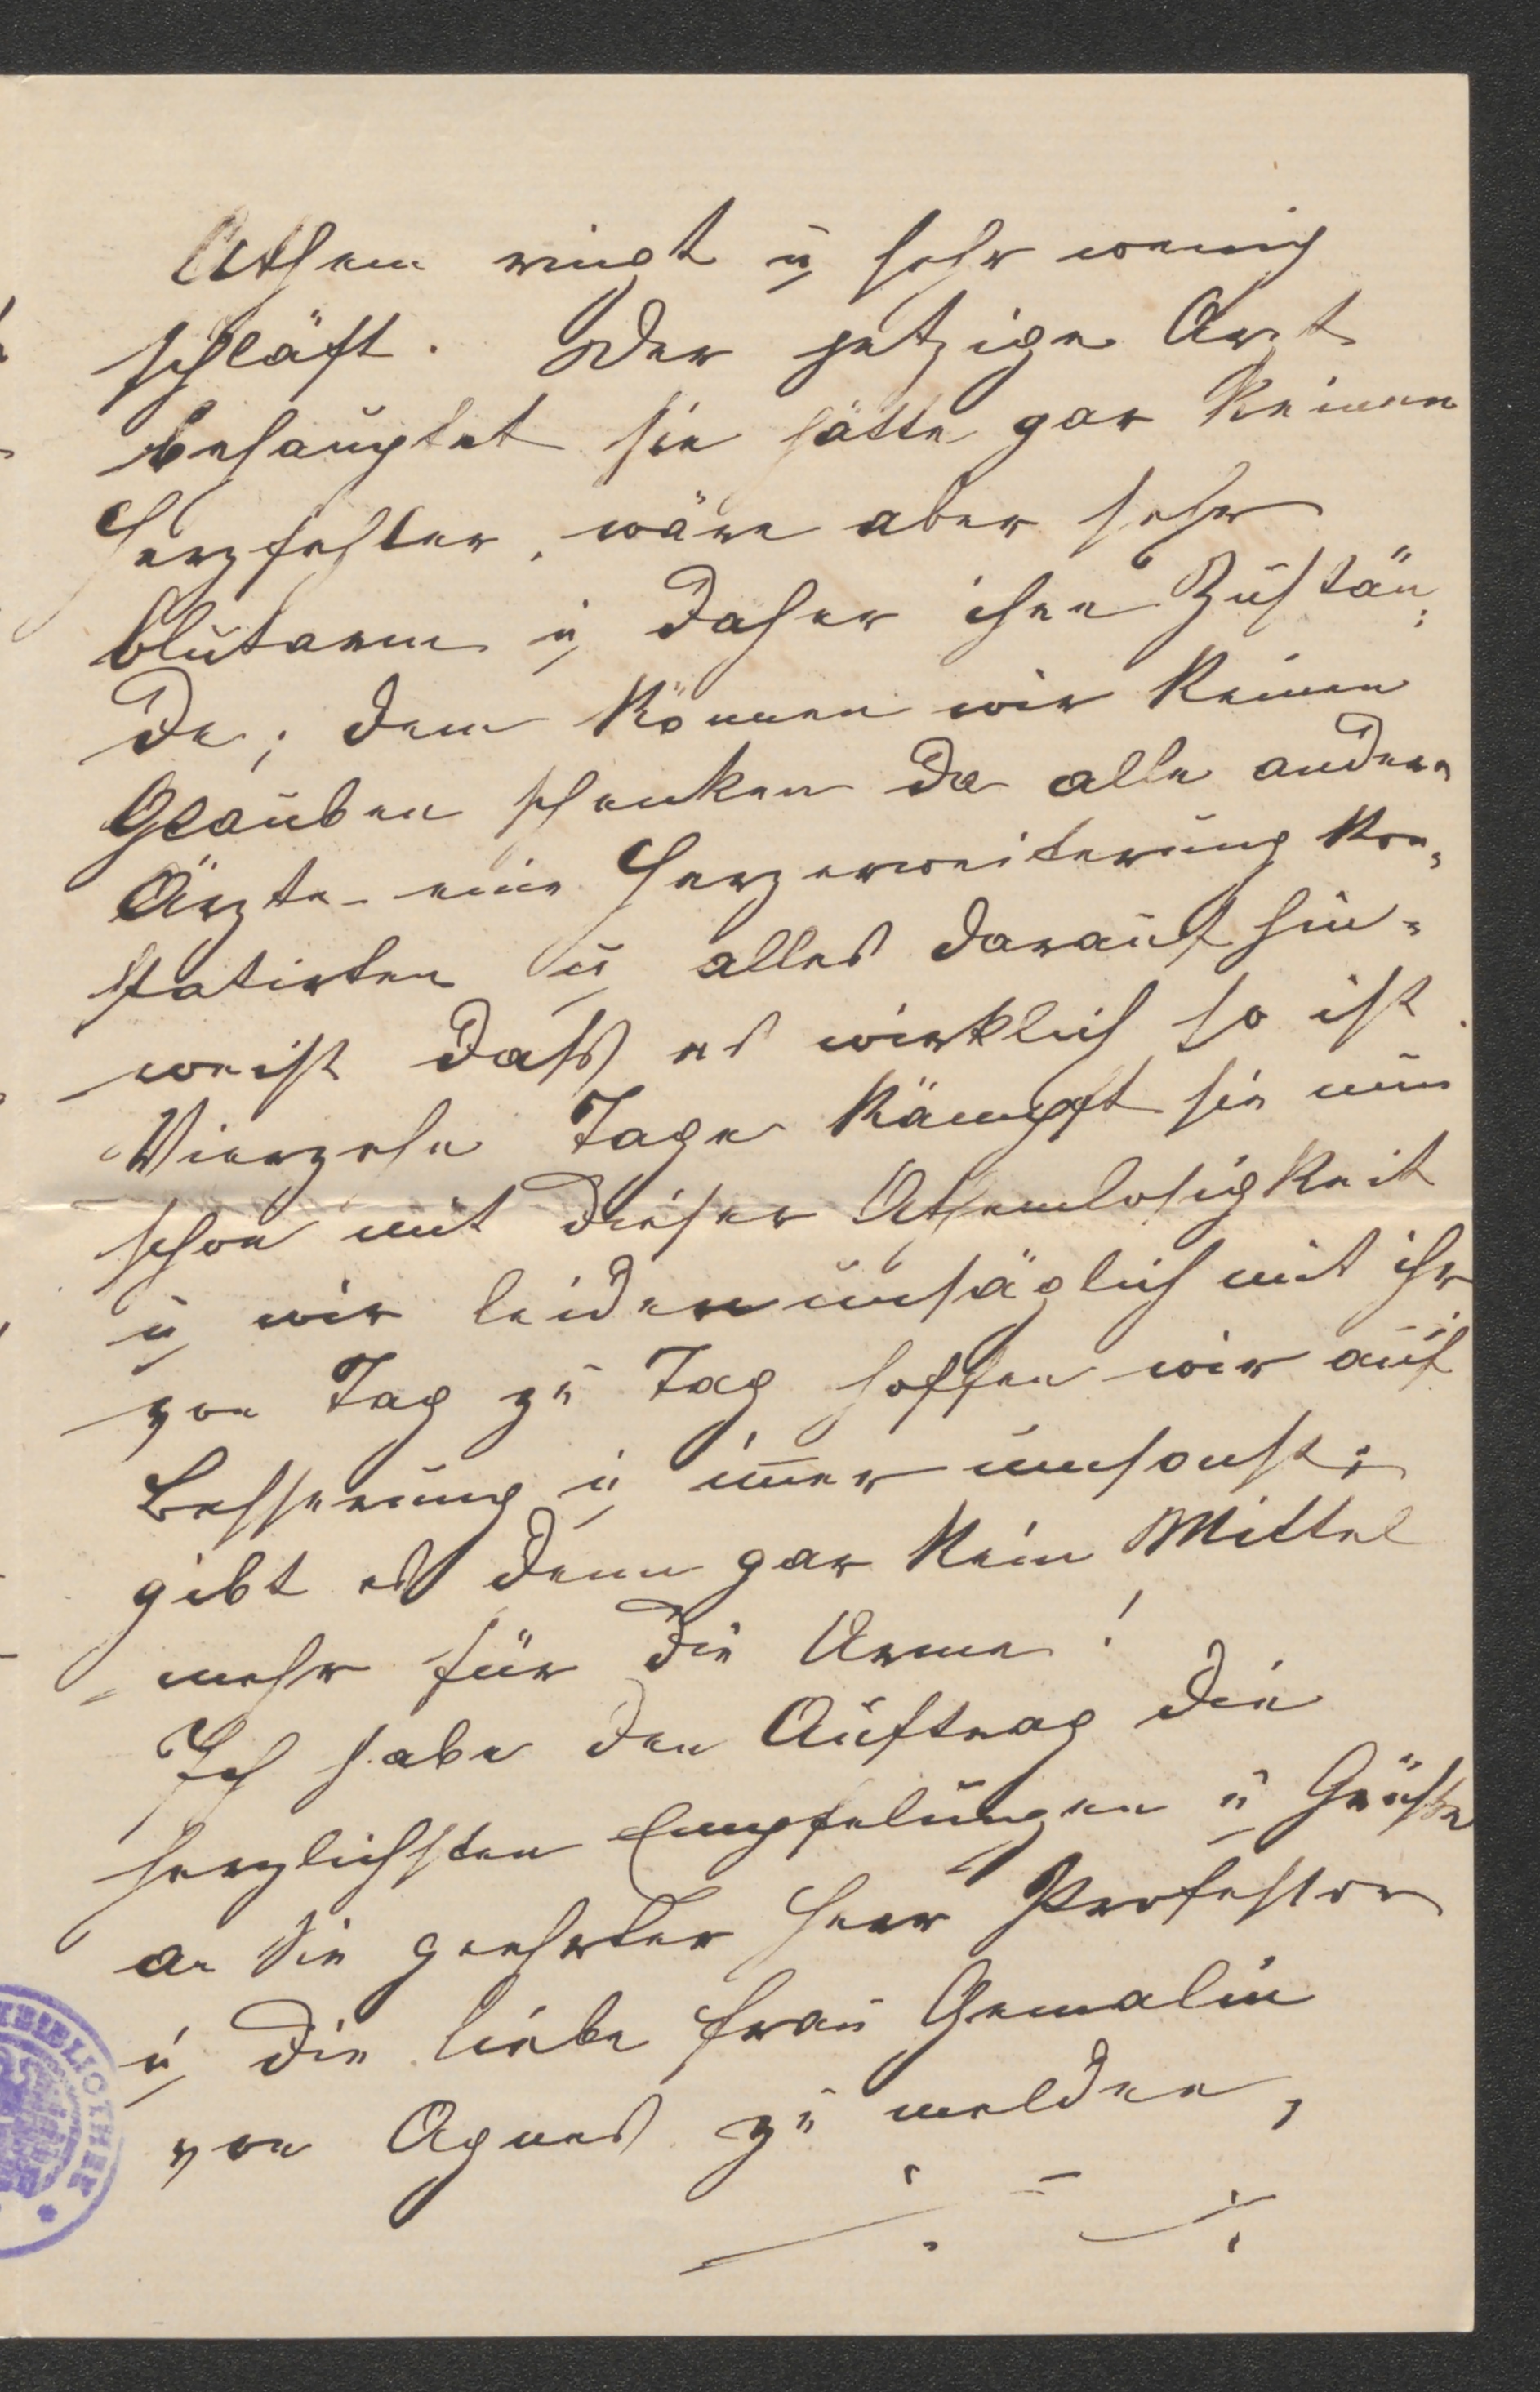 Athem ringt u sehr wenig
schläft. Der jetzige Arzt
behauptet sie hätte gar keinen
Herzfehler, wäre aber sehr
blutarm u daher ihre Zustän:
de; dem können wir keinen
Glauben schenken da alle andern
Ärzte eine Herzerweiterung kon„
statirten u alles darauf hin„
weist daß es wirklich so ist.
Vierzehn Tage kämpft sie nun
schon mit dieser Athemlosigkeit
u wir leiden unsäglich mit ihr
von Tag zu Tag hoffen wir auf
Besserung u im̅er umsonst;
gibt es denn gar kein Mittel
mehr für die Arme!
Ich habe den Auftrag die
herzlichsten Empfelungen u Grüße
an Sie geehrter Herr Professor
u die liebe Frau Gemalin
von Agnes zu melden,